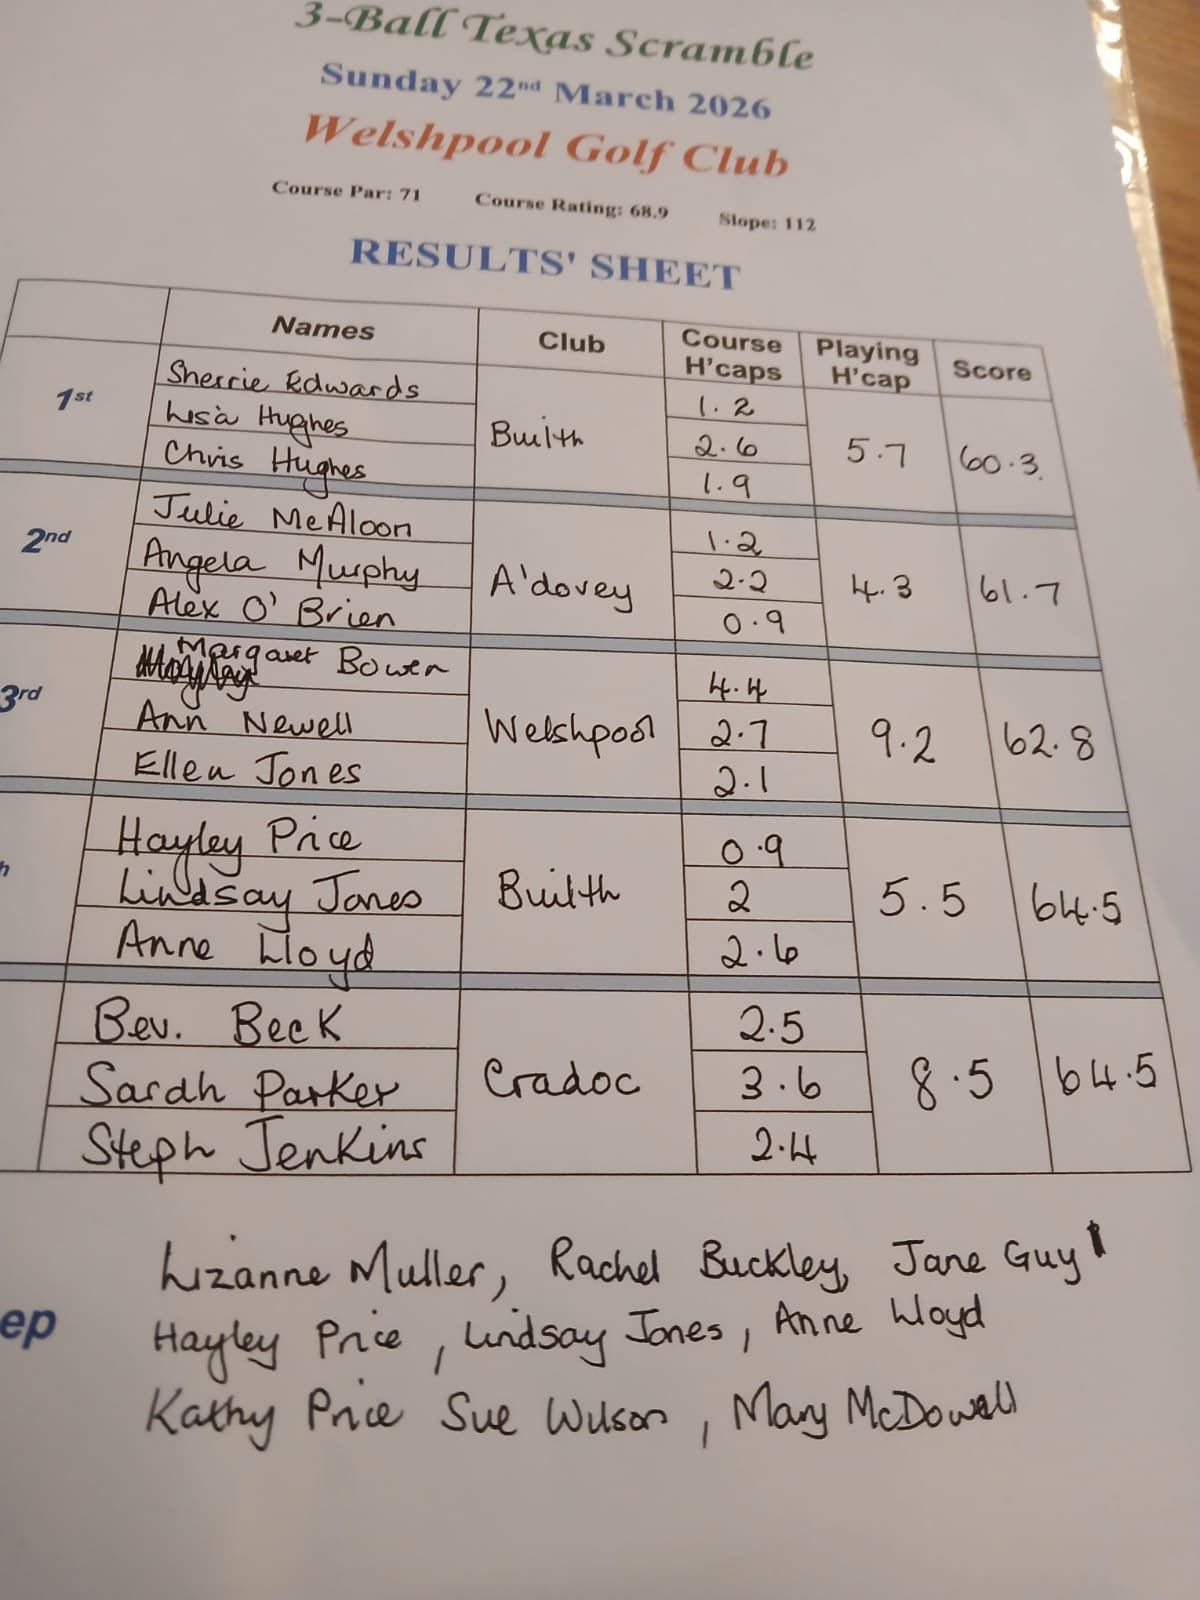 3-Ball Texas Scramble
Sunday 22nd March 2026
Welshpool Golf Club
Course Par: 71 Course Rating: 68.9 Slope: 112
RESULTS' SHEET
Names Club Course H'caps Playing H'cap Score
1st
Sherrie Edwards 1.2
Lisa Hughes Builth 2.6 5.7 60.3
Chris Hughes 1.9
2nd
Julie McAloon 1.2
Angela Murphy A'dovey 2.2 4.3 61.7
Alex O'Brien 0.9
3rd
Margaret Bowen 4.4
Ann Newell Welshpool 2.7 9.2 62.8
Ellen Jones 2.1
Hayley Price 0.9
Lindsay Jones Builth 2 5.5 64.5
Anne Lloyd 2.6
Bev. Beck 2.5
Sarah Parker Cradoc 3.6 8.5 64.5
Steph Jenkins 2.4
Lizanne Muller, Rachel Buckley, Jane Guy
ep
Hayley Price, Lindsay Jones, Anne Lloyd
Kathy Price Sue Wilson, Mary McDowell